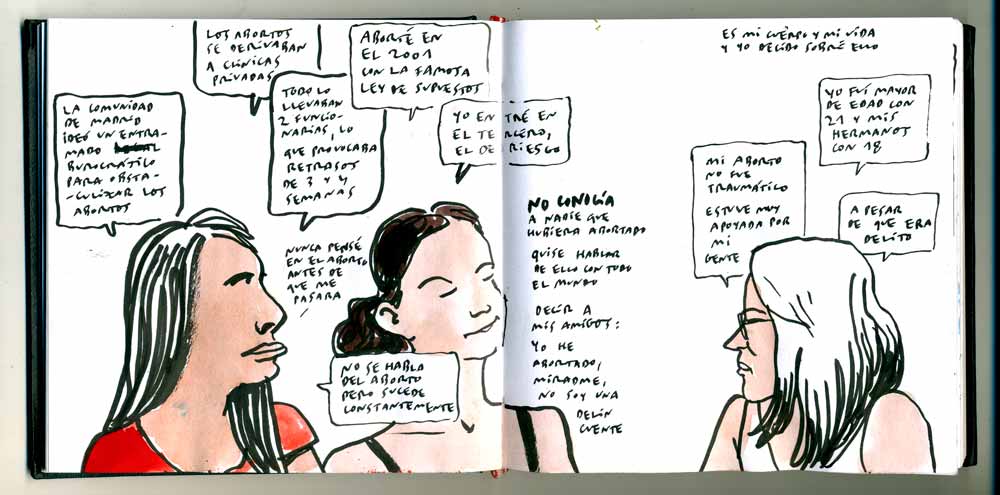 LA COMUNIDAD
DE MADRID
IDEÓ UN ENTRA-
MADO
BUROCRÁTICO
PARA OBSTA-
-CULIZAR LOS
ABORTOS
LOS ABORTOS
SE DERIVABAN
A CLÍNICAS
PRIVADAS
TODO LO
LLEVABAN
2 FUNCIO-
NARIAS, LO
QUE PROVOCABA
RETRASOS
DE 3 Y 4
SEMANAS
ABORTÉ EN
EL 2001
CON LA FAMOSA
LEY DE SUPUESTOS
YO ENTRÉ EN
EL TERCERO,
EL DE RIESGO
NUNCA PENSÉ
EN EL ABORTO
ANTES DE
QUE ME
PASARA
NO SE HABLA
DEL ABORTO
PERO SUCEDE
CONSTANTEMENTE
NO CONOCÍA
A NADIE QUE
HUBIERA ABORTADO
QUISE HABLAR
DE ELLO CON TODO
EL MUNDO
DECIR A
MIS AMIGOS:
YO HE
ABORTADO,
MIRADME,
NO SOY UNA
DELIN
CUENTE
ES MI CUERPO Y MI VIDA
Y YO DECIDO SOBRE ELLO
MI ABORTO
NO FUE
TRAUMÁTICO
ESTUVE MUY
APOYADA POR
MI
GENTE
YO FUÍ MAYOR
DE EDAD CON
21 Y MIS
HERMANOS
CON 18
A PESAR
DE QUE ERA
DELITO